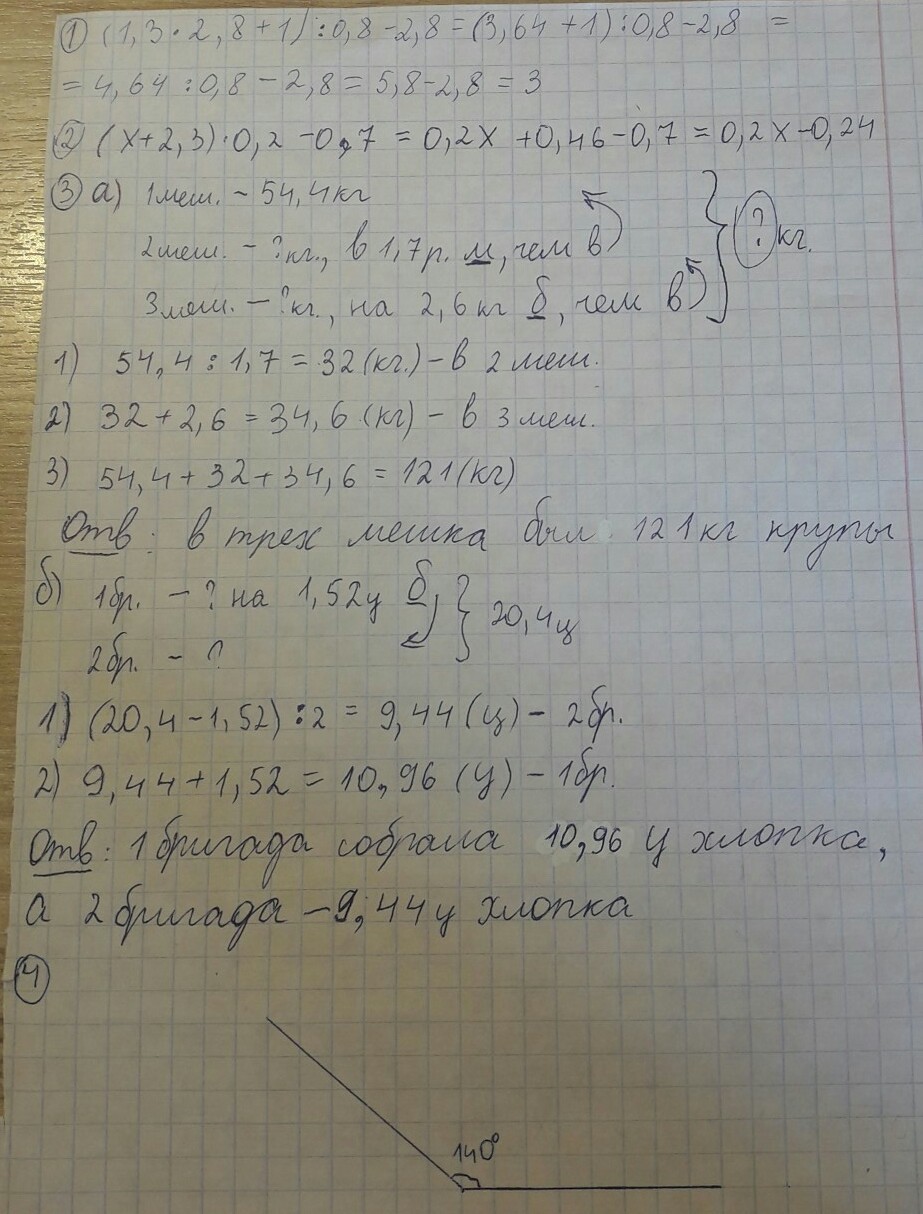 1) (1,3·2,8+1):0,8-2,8=(3,64+1):0,8-2,8 =
= 4,64:0,8-2,8=5,8-2,8=3
2) (х+2,3)·0,2-0,7=0,2х+0,46-0,7=0,2х-0,24
3) а) 1меш. - 54,4кг
2меш. - ?кг., в 1,7р. м, чем в
3меш. - ?кг., на 2,6кг б, чем в
? кг.
1) 54,4:1,7=32(кг.)-в 2 меш.
2) 32+2,6=34,6(кг)-в 3 меш.
3) 54,4+32+34,6=121(кг)
Отв: в трех мешка был 121кг крупы
б) 1бр. - ? на 1,52ц б
20,4ц
2бр. - ?
1) (20,4-1,52):2=9,44(ц)-2бр.
2) 9,44+1,52=10,96(ц)-1бр.
Отв: 1бригада собрала 10,96 ц хлопка,
а 2бригада-9,44ц хлопка
4
140°